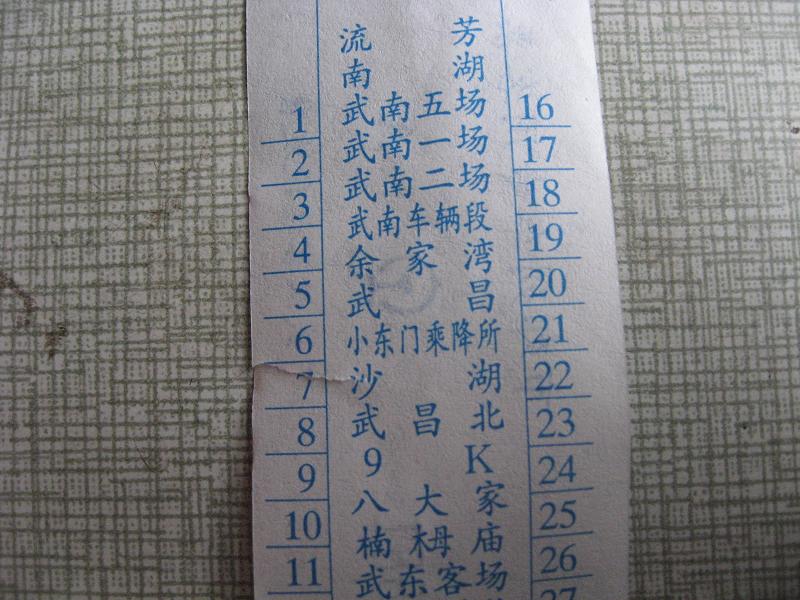 流芳
南湖
1 武南五场 16
2 武南一场 17
3 武南二场 18
4 武南车辆段 19
5 余家湾 20
武昌
6 小东门乘降所 21
7 沙湖 22
8 武昌北 23
9 9K 24
10 八大家 25
11 楠木庙 26
武东客场 27